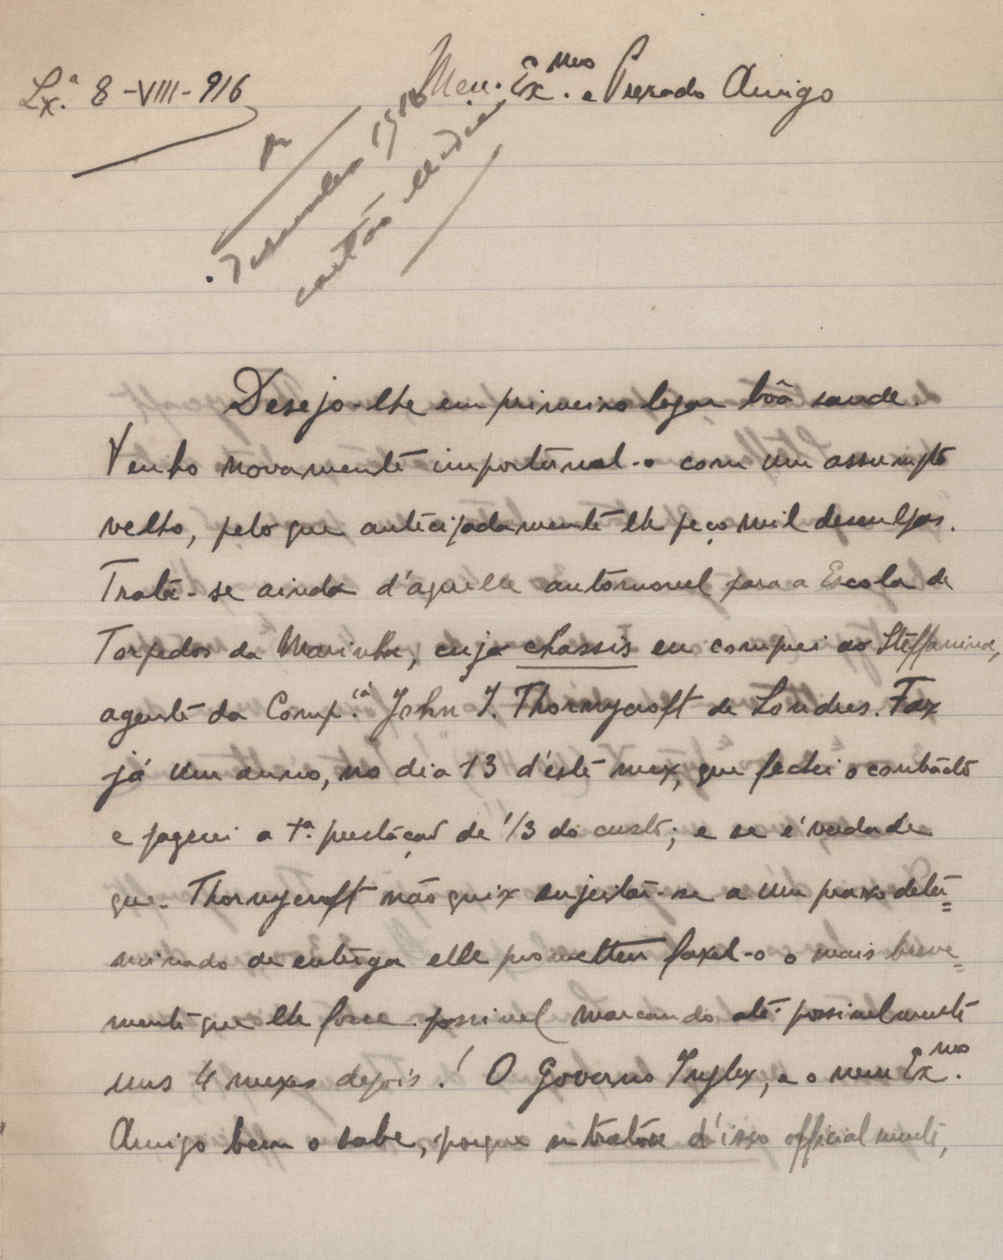 Lx.ª 8-VIII-916
Meu Ex.mo e Prezado Amigo
1916
cartão
Desejo-lhe em primeiro logar bôa saude.
Venho novamente importunal-o com um assumpto
velho, pelo que antecipadamente lhe peço mil desculpas.
Trata-se ainda d'aquelle automovel para a Escola de
Torpedos da Marinha, cujo chassis eu comprei ao Steffanina,
agente da Comp.ª John I. Thornycroft de Londres. Faz
já um anno, no dia 13 d'este mez, que fechei o contracto
e paguei a 1ª. prestação de 1/3 do custo; e se é verdade
que Thornycroft não quiz sujeitar-se a um praso deter=
minado de entrega elle prometteu fazel-o o mais breve=
mente que lhe fosse possivel marcando até possivelmente
uns 4 mezes depois! O Governo Inglez, e o meu Ex.mo
Amigo bem o sabe, porque tratou d'isso officialmente,